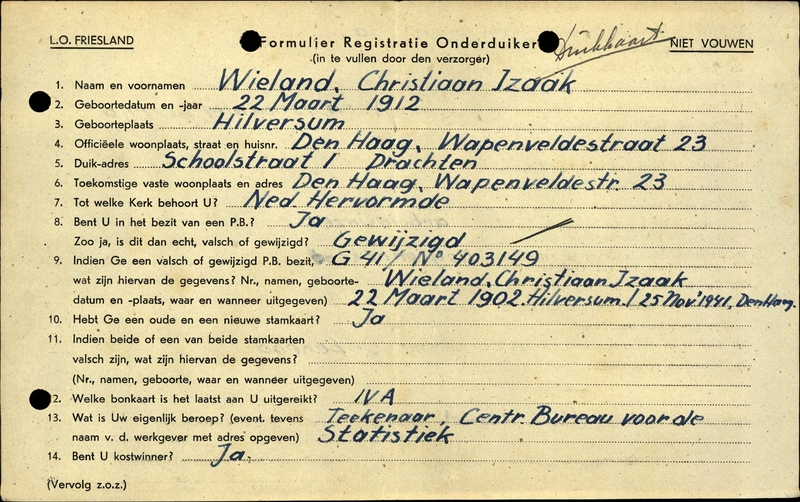 L.O. FRIESLAND
Formulier Registratie Onderduiker
Duikkaart
NIET VOUWEN
(in te vullen door den verzorger)
1. Naam en voornamen Wieland, Christiaan Izaak
2. Geboortedatum en -jaar 22 Maart 1912
3. Geboorteplaats Hilversum
4. Officiëele woonplaats, straat en huisnr. Den Haag, Wapenveldestraat 23
5. Duik-adres Schoolstraat 1 Drachten
6. Toekomstige vaste woonplaats en adres Den Haag, Wapenveldestr. 23
7. Tot welke Kerk behoort U? Ned. Hervormde
8. Bent U in het bezit van een P.B.? Ja
Zoo ja, is dit dan echt, valsch of gewijzigd? Gewijzigd
9. Indien Ge een valsch of gewijzigd P.B. bezit, G 41 / No 403149
wat zijn hiervan de gegevens? Nr., namen, geboorte- Wieland, Christiaan Izaak
datum en -plaats, waar en wanneer uitgegeven) 22 Maart 1902. Hilversum / 25 Nov. 1941, Den Haag.
10. Hebt Ge een oude en een nieuwe stamkaart? Ja
11. Indien beide of een van beide stamkaarten
valsch zijn, wat zijn hiervan de gegevens?
(Nr., namen, geboorte, waar en wanneer uitgegeven)
2. Welke bonkaart is het laatst aan U uitgereikt? IVA
13. Wat is Uw eigenlijk beroep? (event. tevens Teekenaar, Centr. Bureau voor de
naam v. d. werkgever met adres opgeven) Statistiek
14. Bent U kostwinner? Ja.
(Vervolg z.o.z.)